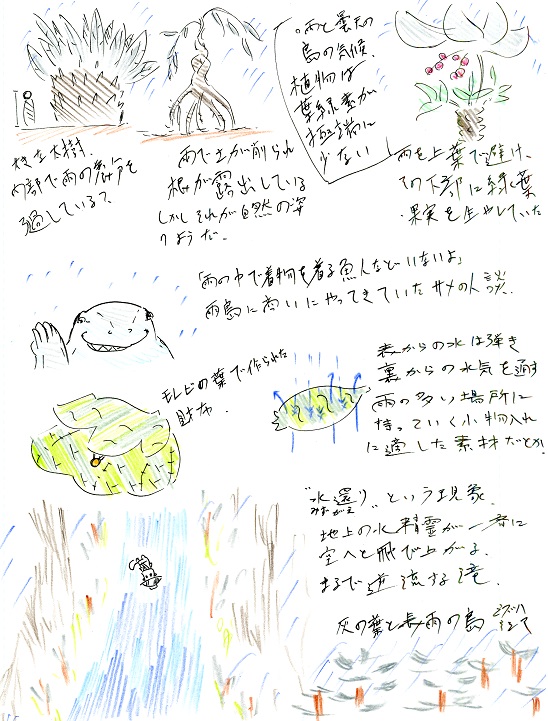 ・雨と曇天の
島の気候、
植物は
葉緑素が
極端に
少ない
大きな大樹、
内部で雨の季節を
過している?
雨で土が削られ
根が露出している
しかしそれが自然の姿
のようだ。
雨を上葉で避け、
その下部に緑葉
・果実を生やしていた
「雨の中で着物を着る魚人などいないよ」
雨島に商いにやってきていたサメの人
モレビの葉で作られた
財布.
表からの水は弾き
裏からの水気を通す
雨の多い場所に
持っていく小物入れ
に適した素材だとか.
"水還り"という現象。
みずがえり
地上の水精霊が一斉に
空へと飛び上がる、
まるで逆流する滝。
灰の葉と長雨の島